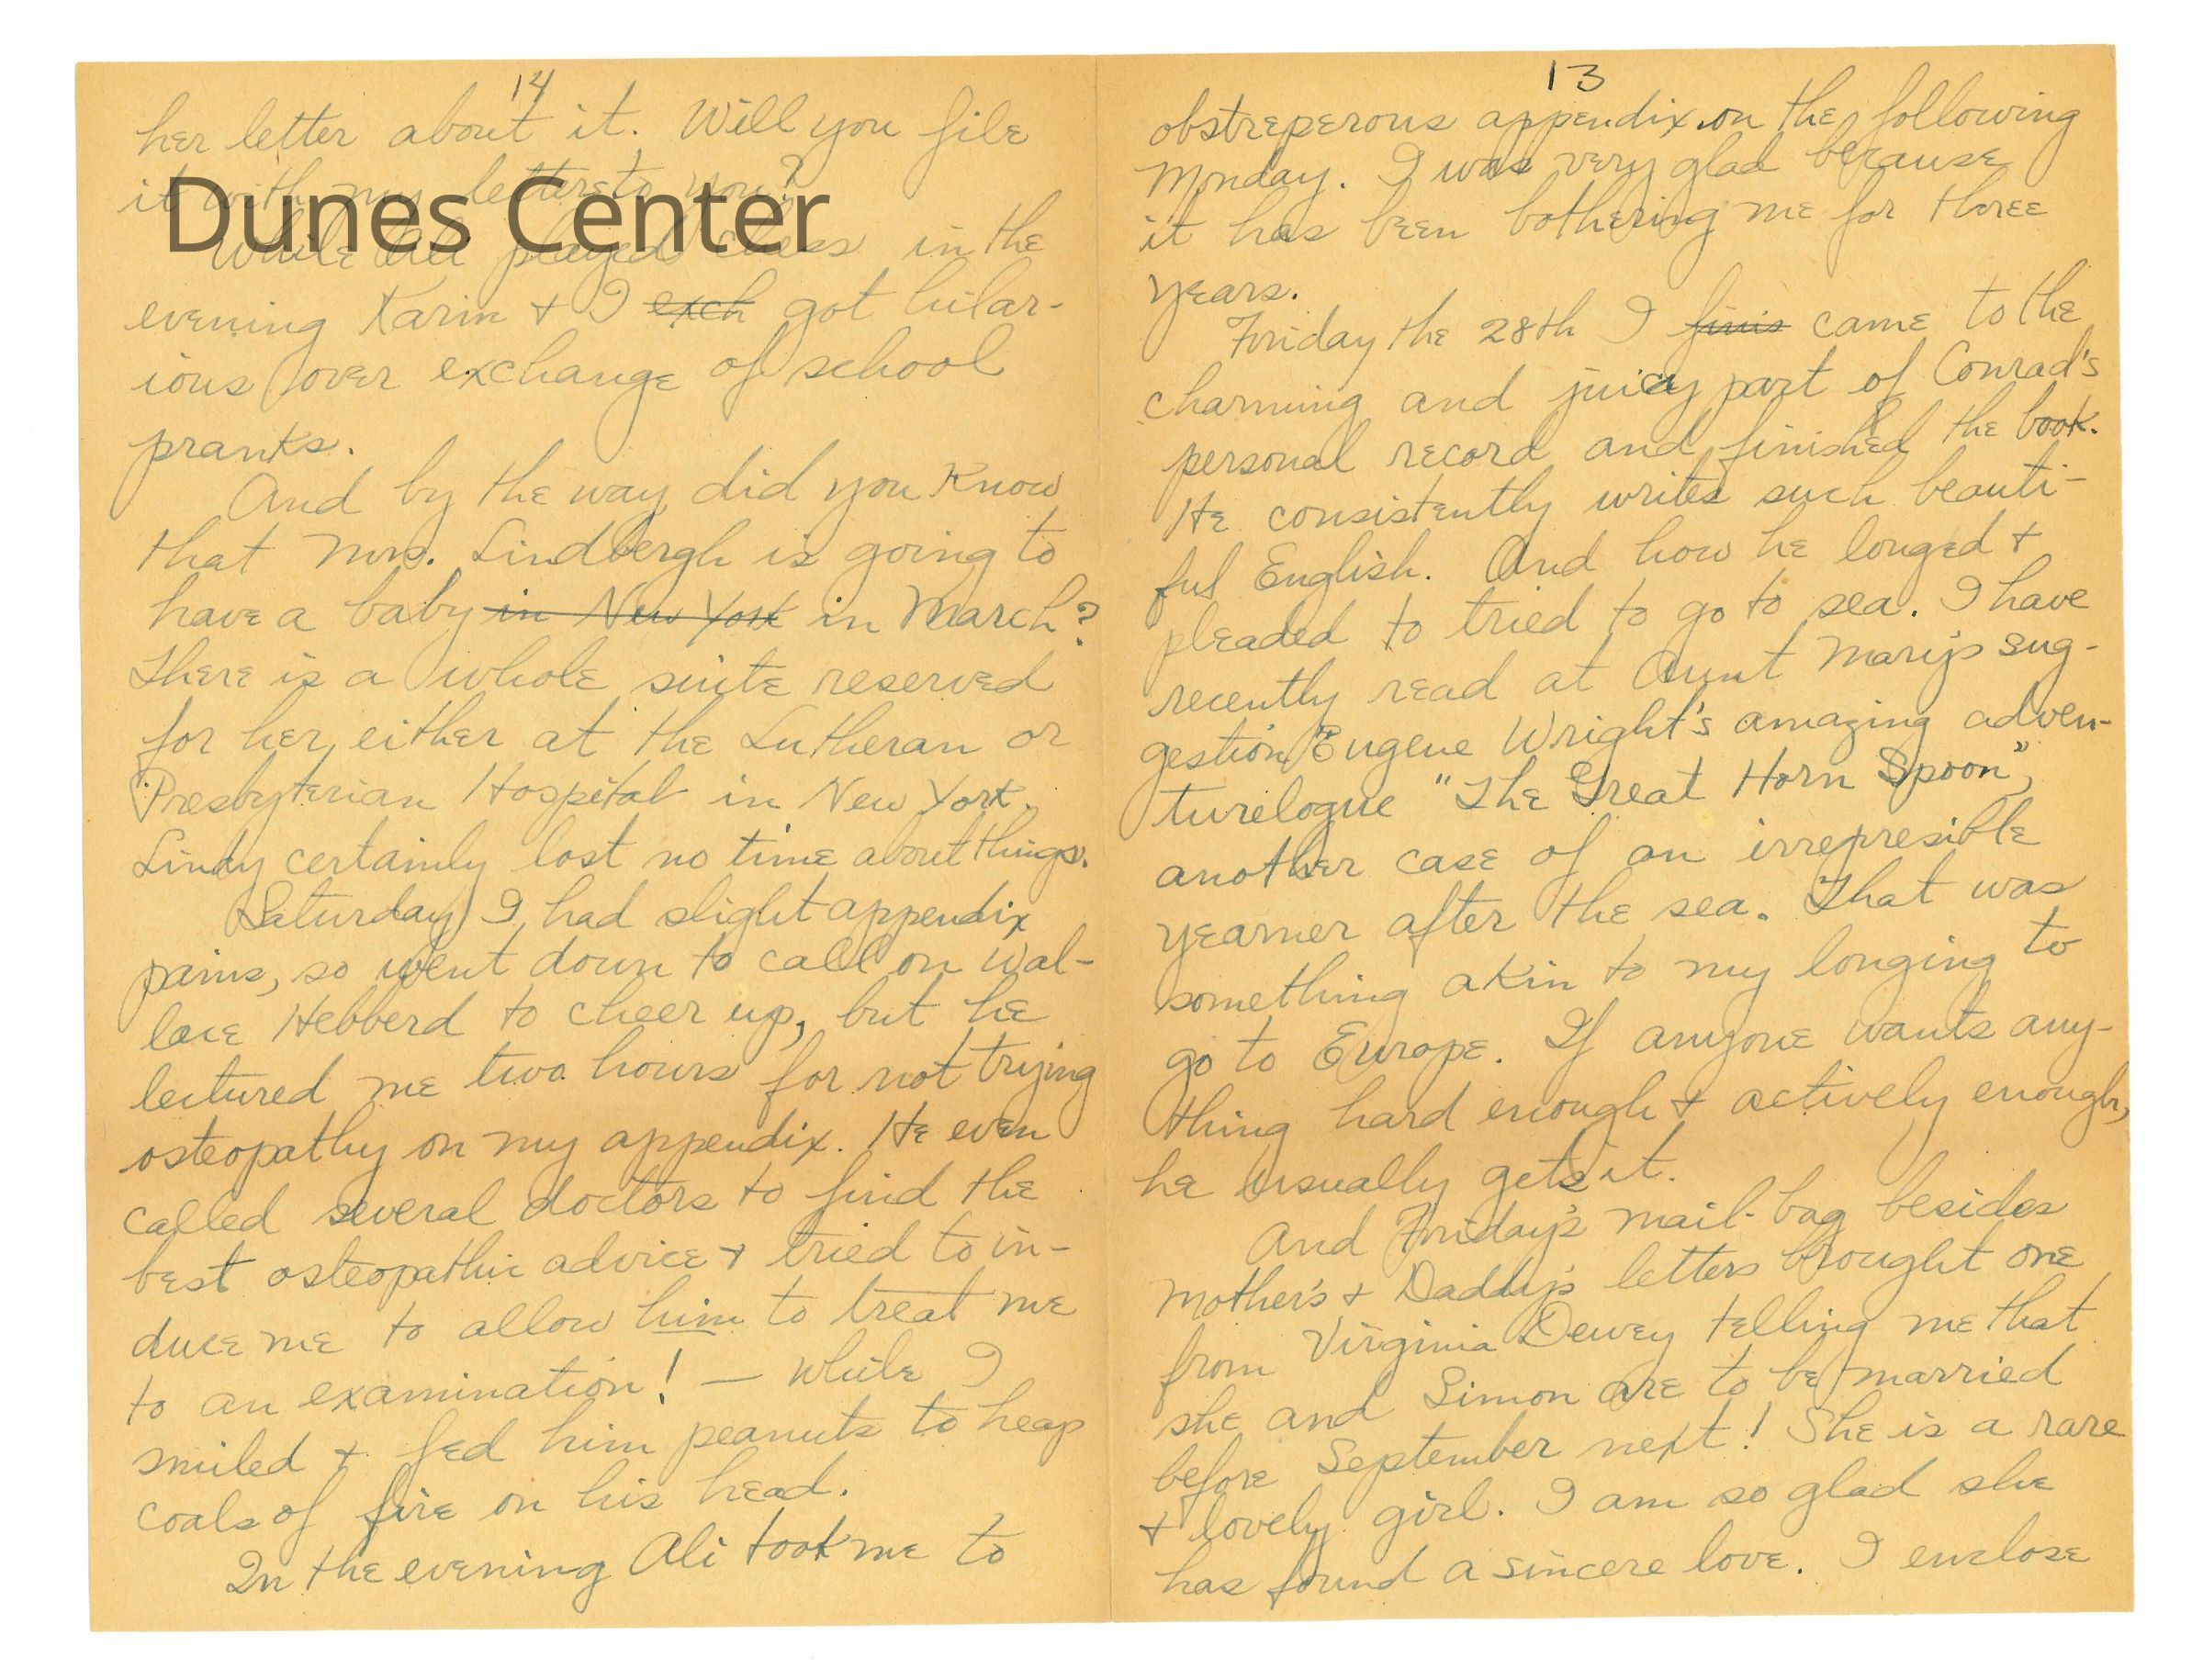 14
her letter about it. Will you file
it with my letters to you?
Dunes Center
While Ali played chess in the
evening Karin + I exch got hilar-
ious over exchange of school
pranks.
And by the way, did you know
that Mrs. Lindbergh is going to
have a baby in New York in March?
There is a whole suite reserved
for her, either at the Lutheran or
Presbyterian Hospital in New York.
Lindy certainly lost no time about things.
Saturday I had slight appendix
pains, so went down to call on Wal-
lace Hebberd to cheer up, but he
lectured me two hours for not trying
osteopathy on my appendix. He even
called several doctors to find the
best osteopathic advice + tried to in-
duce me to allow him to treat me
to an examination! — while I
smiled + fed him peanuts to heap
coals of fire on his head.
In the evening Ali took me to
13
obstreperous appendix on the following
Monday. I was very glad because
it has been bothering me for three
years.
Friday the 28th I finis came to the
charming and juicy part of Conrad's
personal record and finished the book.
He consistently writes such beauti-
ful English. And how he longed +
pleaded to tried to go to sea. I have
recently read at Aunt Mary's sug-
gestion Eugene Wright's amazing adven-
turelogue "The Great Horn Spoon",
another case of an irrepresible
yearner after the sea. That was
something akin to my longing to
go to Europe. If anyone wants any-
thing hard enough + actively enough,
he usually gets it.
And Friday's mail-bag besides
Mother's + Daddy's letters brought one
from Virginia Dewey telling me that
she and Simon are to be married
before September next! She is a rare
+ lovely girl. I am so glad she
has found a sincere love. I enclose